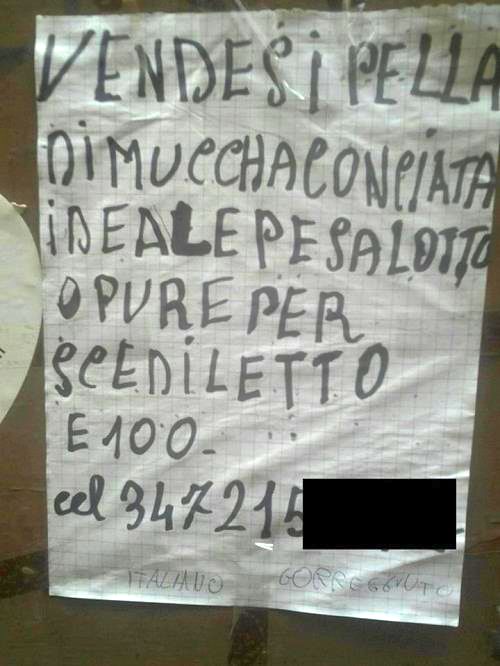 VENDESI PELLA
DI MUCCHA CONCIATA
IDEALE PE SALOTTO
OPURE PER
SCEDILETTO
E 100-
cel 347215
ITALIANO